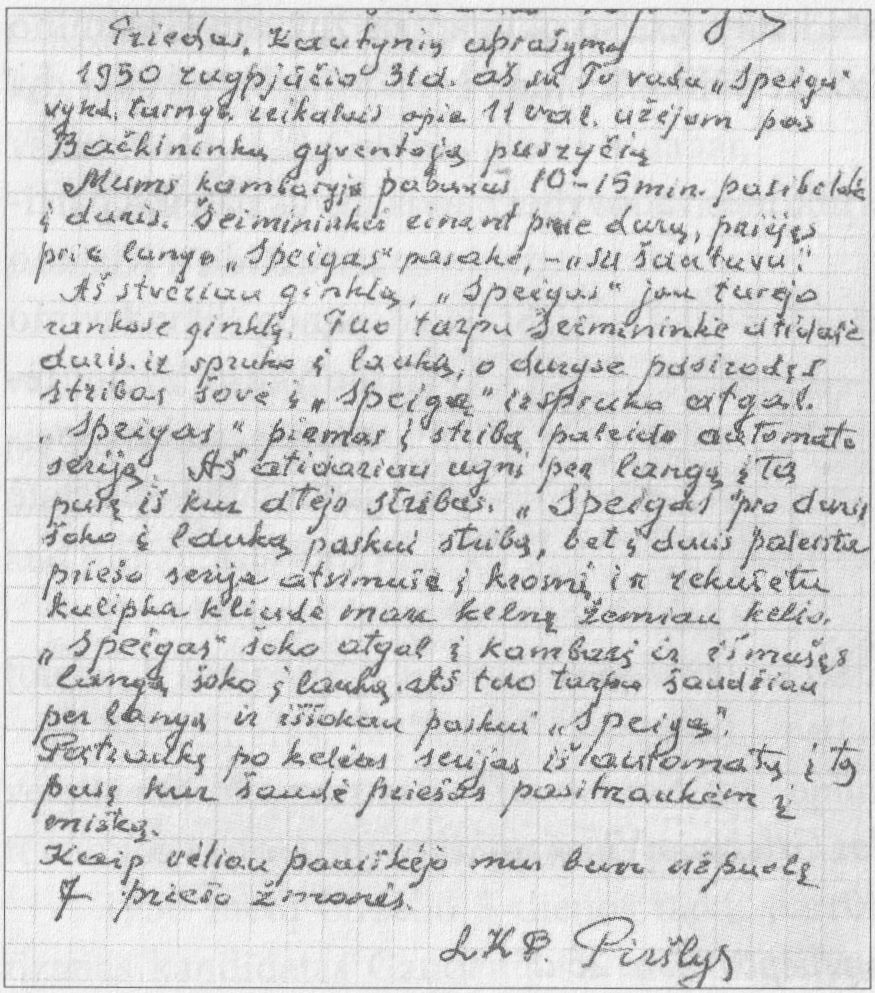 Priedas. Kautynių aprašymas
1950 rugpjūčio 31d. aš su Tv vadu „Speigu"
vykd. tarnyb. reikalais apie 11 val. užėjom pas
Bačkininkų gyventoją pusryčių
Mums kambaryje pabuvus 10-15 min. pasibeldė
į duris. Šeimininkei einant prie durų, priėjęs
prie lango „Speigas" pasakė, -„su šautuvu".
Aš stvėriau ginklą, „Speigas" jau turėjo
rankose ginklą. Tuo tarpu šeimininkė atidarė
duris ir spruko į lauką, o duryse pasirodęs
stribas šovė į „Speigą" ir spruko atgal.
„Speigas" pirmas į stribą paleido automato
seriją. Aš atidariau ugnį per langą į tą
pusę iš kur atėjo stribas. „Speigas" pro duris
šoko į lauką paskui stribą, bet į duris paleista
priešo serija atsimušė į krosnį ir rekušetu
kulipka kliudė man kelnę žemiau kelio.
„Speigas" šoko atgal į kambarį ir išmušęs
langą šoko į lauką. Aš tuo tarpu šaudžiau
per langą ir iššokau paskui „Speigą".
Patraukę po kelias serijas iš automatų į tą
pusę kur šaudė priešas pasitraukėm į
mišką.
Kaip vėliau paaiškėjo mus buvo užpuolę
7 priešo žmonės.
LKB. Piršlys